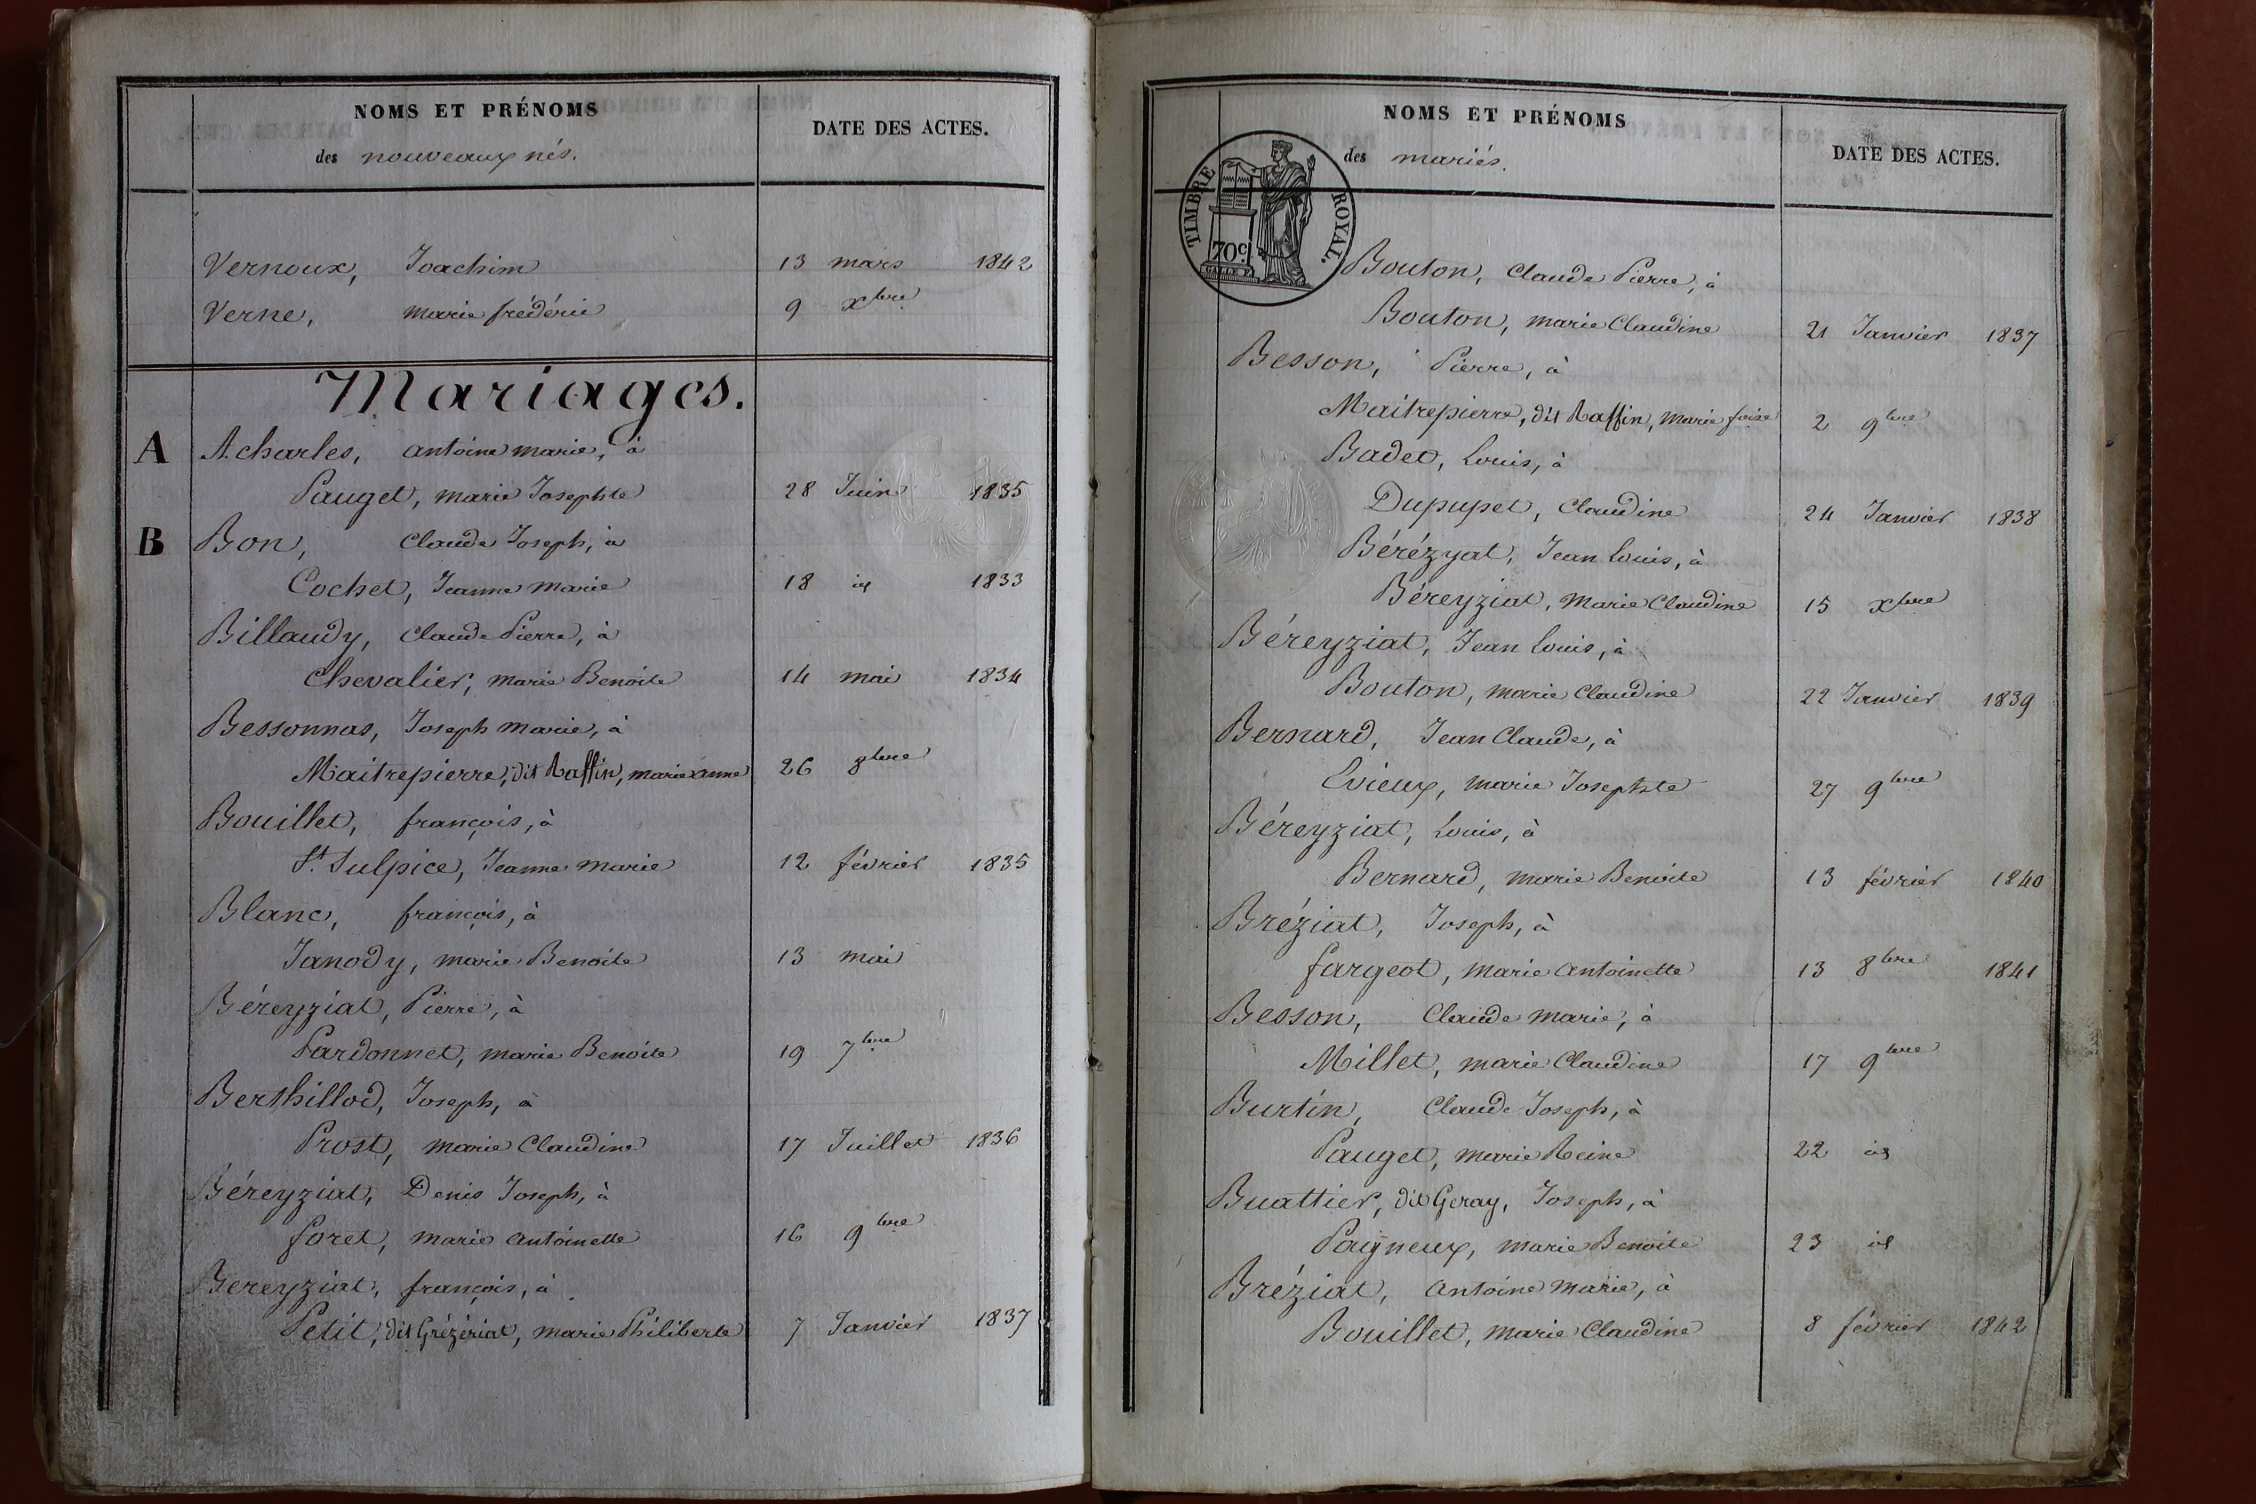 NOMS ET PRÉNOMS
des nouveaux nés.
DATE DES ACTES.
Vernoux, Joachim 13 mars 1842
Verne, marie frédéric 9 xbre
Mariages.
A Acharles, antoine marie, à
Pauget, marie Josephte 28 Juin 1835
B Bon, Claude Joseph, à
Cochet, Jeanne marie 18 id 1833
Billaudy, Claude Pierre, à
Chevalier, marie Benoite 14 mai 1834
Bessonnas, Joseph marie, à
Maitrepierre, dit Raffin, marie anne 26 8bre
Bouillet, françois, à
St. Sulpice, Jeanne marie 12 février 1835
Blanc, françois, à
Janody, marie Benoite 13 mai
Béreyziat, Pierre, à
Pardonnet, marie Benoite 19 7bre
Berthillod, Joseph, à
Prost, marie Claudine 17 Juillet 1836
Béreyziat, Denis Joseph, à
foret, marie antoinette 16 9bre
Bereyziat, françois, à
Petit, dit Grézériat, marie Philiberte 7 Janvier 1837
NOMS ET PRÉNOMS
des mariés.
DATE DES ACTES.
TIMBRE ROYAL.
70c.
Bouton, Claude Pierre, à
Bouton, marie Claudine 21 Janvier 1837
Besson, Pierre, à
Maitrepierre, dit Raffin, marie foise 2 9bre
Badet, Louis, à
Dupupet, Claudine 24 Janvier 1838
Bérézyat, Jean Louis, à
Béreyziat, marie Claudine 15 xbre
Béreyziat, Jean Louis, à
Bouton, marie Claudine 22 Janvier 1839
Bernard, Jean Claude, à
Evieux, marie Josephte 27 9bre
Béreyziat, Louis, à
Bernard, marie Benoite 13 février 1840
Bréziat, Joseph, à
fargeot, marie antoinette 13 8bre 1841
Besson, Claude marie, à
Millet, marie Claudine 17 9bre
Burtin, Claude Joseph, à
Pauget, marie Reine 22 id
Buattier, dit Geray, Joseph, à
Paigneux, marie Benoite 23 id
Bréziat, antoine marie, à
Bouillet, marie Claudine 8 février 1842